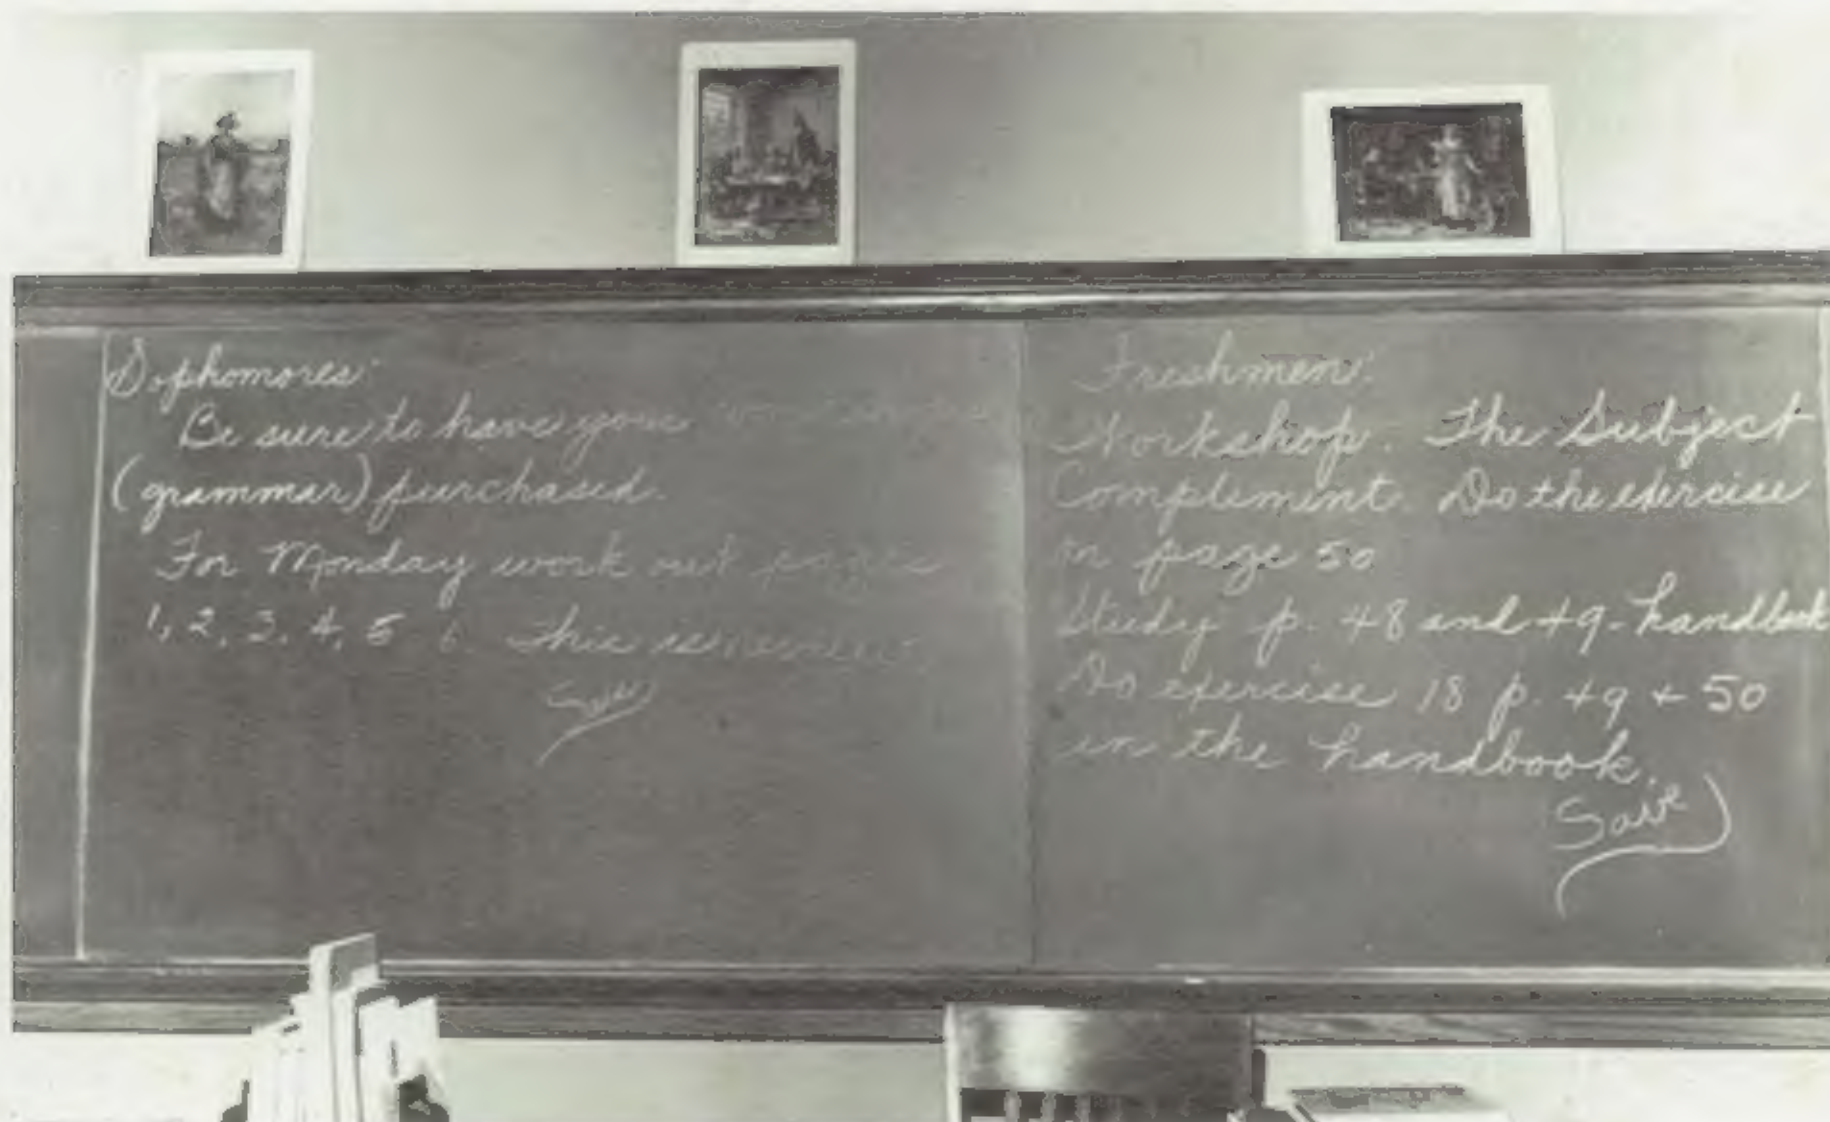 Sophomores:
Be sure to have your
(grammar) purchased.
For Monday work out pages
1, 2, 3, 4, 5 6. This is review.
Save
Freshmen:
Workshop. The Subject
Complement. Do the exercise
on page 50
Study p. 48 and 49 - handbook
Do exercise 18 p. 49 + 50
in the handbook.
Save